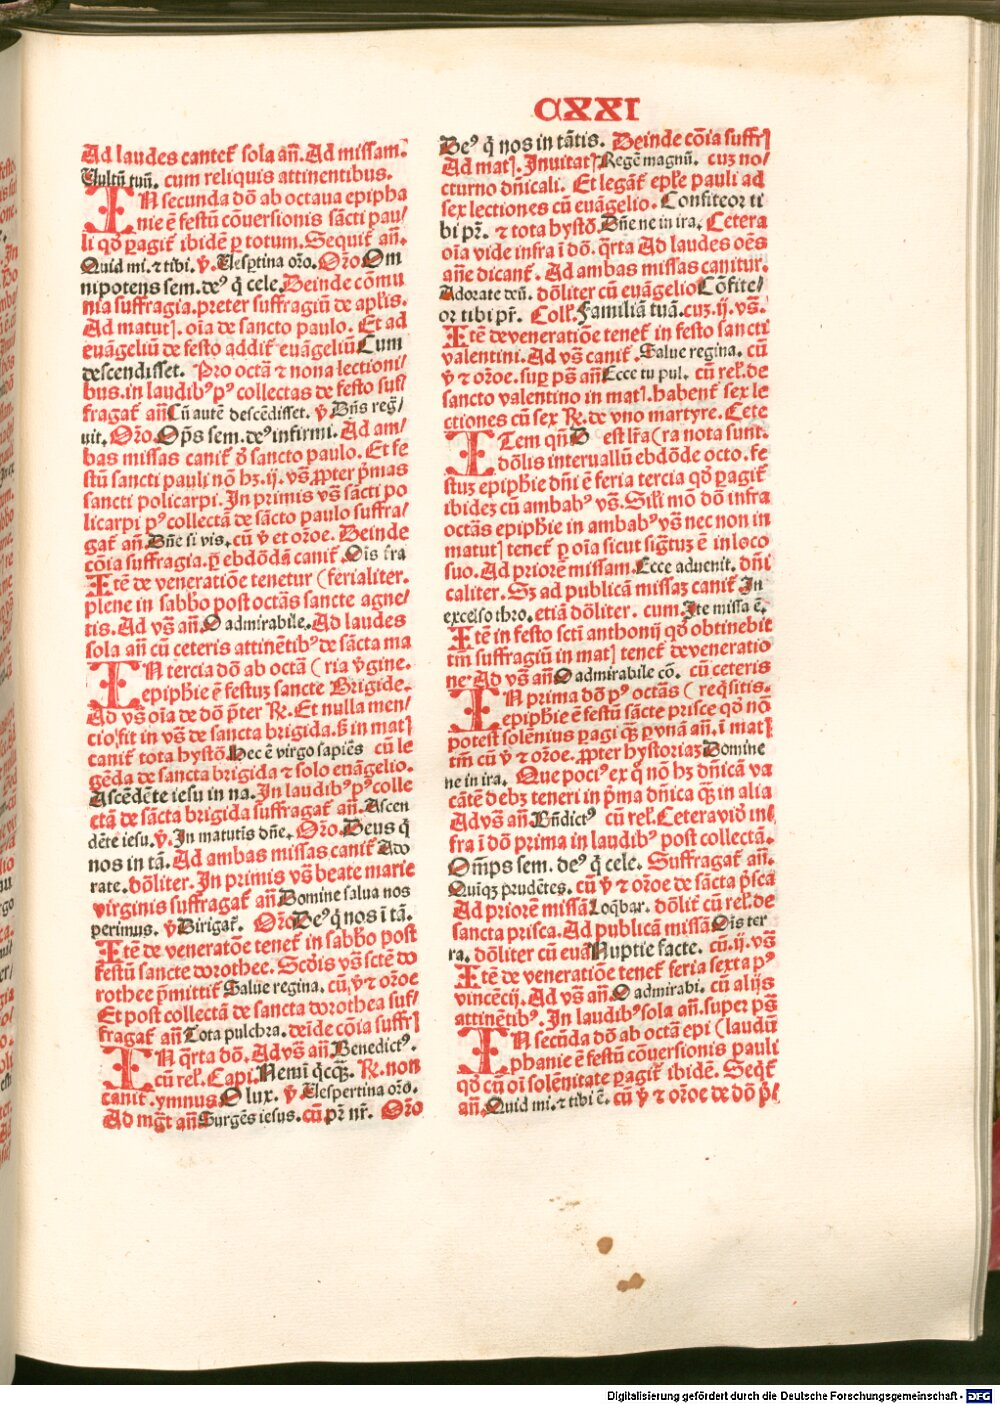 CXXI
Ad laudes cantet᷑ sola an̄. Ad missam.
Uultū tuū. cum reliquis attinentibus.
IN secunda dō ab octaua epipha
nie ē festū cōuersionis sācti pau/
li qd̕ ꝑagit᷑ ibidē ꝑ totum. Sequit᷑ an̄.
Quid mi. ⁊ tibi. v̕. Uesꝑtina or̄o. Or̄o Om
nipotens sem. deꝰ q̄ cele. Deinde cōmu
nia suffragia. preter suffragiū de apl̄is.
Ad matut⁊. oīa de sancto paulo. Et ad
euāgeliū de festo addit᷑ euāgeliū Cum
descendisset. Pro octā ⁊ nona lectioni/
bus. in laudibꝰ pꝰ collectas de festo suf/
fragat᷑ an̄ Cū autē descēdisset. v̕ Dn̄s reg̃/
uit. Or̄o. Op̄s sem. deꝰ infirmi. Ad am/
bas missas canit᷑ d̕ sancto paulo. Et fe
stū sancti pauli nō hꝫ. ij. vs̄. ꝓpter p̄mas
sancti policarpi. In primis vs̄ sācti po
licarpi pꝰ collectā de sācto paulo suffra/
gat᷑ an̄. Dn̄e si vis. cū v̕ et or̄oe. Deinde
cōia suffragia. ꝑ ebdōdā canit᷑. Ois t̄ra
Itē de veneratiōe tenetur (ferialiter.
plene in sabb̕o post octās sancte agne/
tis. Ad vs̄ an̄. O admirabile. Ad laudes
sola an̄ cū ceteris attinētibꝰ de sācta ma
IN tercia dō ab octā (ria v̕gine.
epiph̕ie ē festuꝫ sancte Brigide.
Ad vs̄ oīa de dō p̄ter R̕. Et nulla men/
cio fit in vs̄ de sancta brigida. sꝫ in mat⁊
canit᷑ tota hystō. Hec ē virgo sapiēs cū le
gēda de sancta brigida ⁊ solo euāgelio.
Ascēdēte iesu in na. In laudibꝰ pꝰ colle
ctā de sācta brigida suffragat᷑ an̄. Ascen
dēte iesu. v̕. In matutis dn̄e. Or̄o. Deus q̄
nos in tā. Ad ambas missas canit᷑ Ado
rate. dōliter. In primis vs̄ beate marie
virginis suffragat᷑ an̄ Domine salua nos
perimus. v̕ Dirigat᷑. Or̄o Deꝰ q̄ nos ī tā.
Itē de veneratōe tenet᷑ in sabb̕o post
festū sancte dorothee. Scd̄is vs̄ sctē do
rothee p̄mittit᷑ Salue regina. cū v̕ ⁊ or̄oe
Et post collectā de sancta dorothea suf/
fragat᷑ an̄ Tota pulchra. deīde cōia suffr⁊
IN q̄rta dō. Ad vs̄ an̄ Benedictꝰ.
cū rel̕. Capi. Nemī q̄cq̄ꝫ. R̕. non
canit᷑. ymnus O lux. v̕ Uespertina or̄o.
Ad mg̃t an̄ Surgēs iesus. cū pr̄ nr̄. Or̄o
Deꝰ q̄ nos in tātis. Deinde cōia suffr⁊
Ad mat⁊. Inuitat⁊ Regē magnū. cuꝫ no/
cturno dn̄icali. Et legāt᷑ epl̄e pauli ad
sex lectiones cū euāgelio. Confiteor ti
bi pr̄. ⁊ tota hystō. Dn̄e ne in ira. Cetera
oīa vide infra i dō. q̄rta Ad laudes oēs
an̄e dicant᷑. Ad ambas missas canitur.
Adorate deū. dōliter cū euāgelio Cōfite/
or tibi pr̄. Coll̕. Familiā tuā. cuꝫ. ij. vs̄.
Itē de veneratiōe tenet᷑ in festo sancti
valentini. Ad vs̄ canit᷑. Salue regina. cū
v̕ ⁊ or̄oe. suꝑ ps̄ an̄ Ecce tu pul. cū rel̕. de
sancto valentino in mat⁊. habent᷑ sex le
ctiones cū sex R̕. de vno martyre. Cete
ITem qn̄ D est lr̄a (ra nota sunt.
dōlis interuallū ebdōde octo. fe
stuꝫ epiph̕ie dn̄i ē feria tercia qd̕ ꝑagit᷑
ibideꝫ cū ambabꝰ vs̄. Sil̄i mō dō infra
octās epiph̕ie in ambabꝰ vs̄ nec non in
matut⁊ tenet᷑ ꝑ oīa sicut sig̃tuꝫ ē in loco
suo. Ad priorē missam. Ecce aduenit. dn̄i
caliter. Sꝫ ad publicā missaꝫ canit᷑ In
excelso thro. etiā dōliter. cum. Ite missa ē.
Itē in festo scti anthonij qd̕ obtinebit
tm̄ suffragiū in mat⁊ tenet᷑ de veneratio
ne Ad vs̄ an̄ O admirabile cō. cū ceteris
IN prima dō pꝰ octās (req̄sitis.
epiph̕ie ē festū sācte prisce qd̕ nō
potest solēnius ꝑagi q̄ꝫ ꝑ vnā an̄. ī mat⁊
tm̄ cū v̕ ⁊ or̄oe. ꝓpter hystoriaꝫ Domine
ne in ira. Que pociꝰ ex q̄ nō hꝫ dn̄icā va
cātē debꝫ teneri in p̄ma dn̄ica q̄ꝫ in alia
Ad vs̄ an̄ Bn̄dictꝰ cū rel̕. Cetera vid̕ in/
fra ī dō prima in laudibꝰ post collectā.
Om̄ps sem. deꝰ q̄ cele. Suffragat᷑ an̄.
Quīqꝫ prudētes. cū v̕ ⁊ or̄oe de sācta p̄sca
Ad priorē missā Loq̄bar. dōlit᷑ cū rel̕. de
sancta prisca. Ad publicā missā Ois ter
ra. dōliter cū euā Nuptie facte. cū. ij. vs̄
Itē de veneratiōe tenet᷑ feria sexta pꝰ
vincēcij. Ad vs̄ an̄. O admirabi. cū alijs
attinētibꝰ. In laudibꝰ sola an̄. super ps̄
IN secūda dō ab octā epi (laudū
phanie ē festū cōuersionis pauli
qd̕ cū oī solēnitate ꝑagit᷑ ibidē. Seq̄t᷑
an̄. Quid mi. ⁊ tibi ē. cū v̕ ⁊ or̄oe de dō p̄/
Digitalisierung gefördert durch die Deutsche Forschungsgemeinschaft - DFG